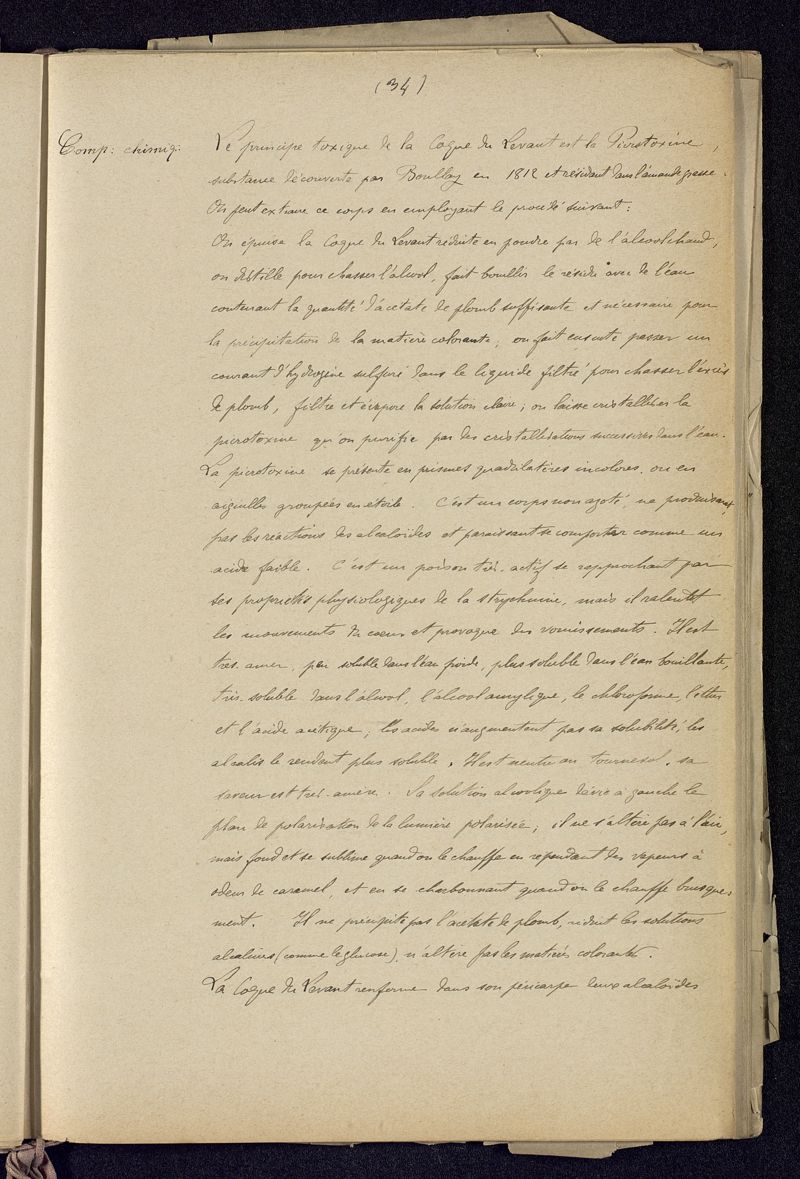 (34)
Comp: chimiq: Le principe toxique de la Coque du Levant est la Picrotoxine,
substance découverte par Boullay en 1812 et résidant dans l'amande grasse.
On peut extraire ce corps en employant le procédé suivant:
On épuise la Coque du Levant réduite en poudre par de l'alcool chaud,
on distille pour chasser l'alcool, fait bouillir le résidu avec de l'eau
contenant la quantité d'acétate de plomb suffisante et nécessaire pour
la précipitation de la matière colorante; on fait ensuite passer un
courant d'hydrogène sulfuré dans le liquide filtré pour chasser l'excès
de plomb, filtre et évapore la solution claire; on laisse cristalliser la
picrotoxine qu'on purifie par des cristallisations successives dans l'eau.
La picrotoxine se présente en prismes quadrilatères incolores, ou en
aiguilles groupées en étoile. C'est un corps non azoté, ne produisant
pas les réactions des alcaloïdes et paraissant se comporter comme un
acide faible. C'est un poison très-actif se rapprochant par
ses propriétés physiologiques de la strychnine, mais il ralentit
les mouvements du coeur et provoque des vomissements. Il est
très-amer, peu soluble dans l'eau froide, plus soluble dans l'eau bouillante,
très-soluble dans l'alcool, l'alcool amylique, le chloroforme, l'ether
et l'acide acétique; les acides n'augmentent pas sa solubilité, les
alcalis le rendent plus soluble. Il est neutre au tournesol, sa
saveur est très-amère. Sa solution alcoolique dévie à gauche le
plan de polarisation de la lumière polarisée; il ne s'altère pas à l'air,
mais fond et se sublime quand on le chauffe en répendant des vapeurs à
odeur de caramel, et en se charbonnant quand on le chauffe brusque-
ment. Il ne précipite pas l'acétate de plomb, réduit les solutions
alcalines (comme le glucose), n'altère pas les matières colorantes.
La Coque du Levant renferme dans son péricarpe deux alcaloïdes